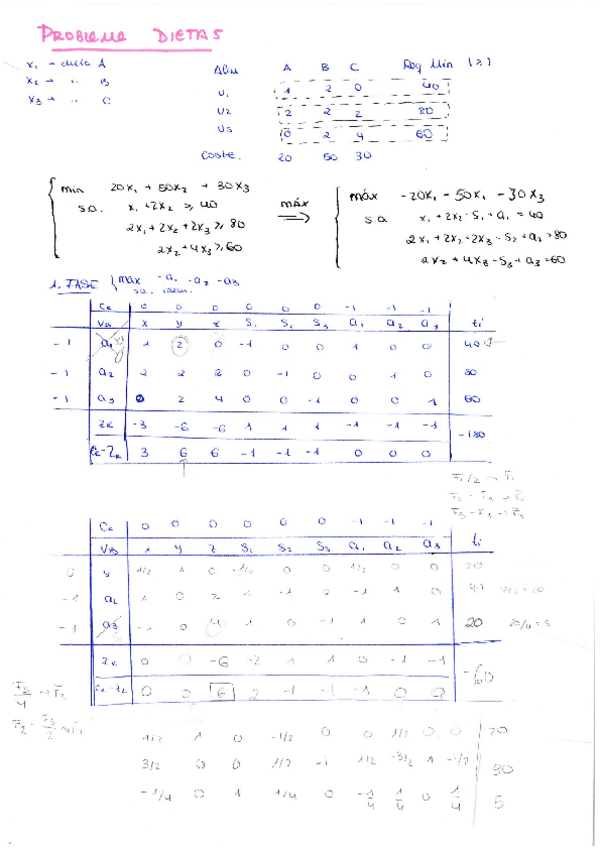 PROBLEMA DIETAS
x₁ → dieta A
x₂ → " B
x₃ → " C
A B C Req Min (≥)
U₁ 1 2 0 40
U2 2 2 2 80
U3 0 2 4 60
Coste. 20 50 30
min 20x₁ + 50x₂ + 30x₃
s.a. x₁ + 2x₂ ≥ 40
2x₁ + 2x₂ + 2x₃ ≥ 80
2x₂ + 4x₃ ≥ 60
máx ⇒
máx -20x₁ - 50x₁ - 30x₃
s.a x₁ + 2x₂ - S₁ + a₁ = 40
2x₁ + 2x₂ + 2x₃ - S₂ + a₂ = 80
2x₂ + 4x₃ - S₃ + a₃ = 60
1. FASE máx -a₁ -a₂ -a₃
Ck 0 0 0 0 0 0 -1 -1 -1
VB x y z S₁ S₂ S₃ a₁ a₂ a₃ ti
-1 a₁ 1 2 0 -1 0 0 1 0 0 40
-1 a₂ 2 2 2 0 -1 0 0 1 0 80
-1 a₃ 0 2 4 0 0 -1 0 0 1 60
Zk -3 -6 -6 1 1 1 -1 -1 -1 -180
Ck-Zk 3 6 6 -1 -1 -1 0 0 0
F₁/2 → F₁
F₂ - F₁ → F₂
F₃ - F₁ → F₃
Ck 0 0 0 0 0 0 -1 -1 -1
VB x y z S₁ S₂ S₃ a₁ a₂ a₃ ti
0 y 1/2 1 0 -1/2 0 0 1/2 0 0 20
-1 a₂ 1 0 2 1 -1 0 -1 1 0 40
-1 a₃ -1 0 4 1 0 -1 1 0 1 20 20/4 = 5
Zk 0 0 -6 -2 1 1 0 -1 -1 -60
Ck-Zk 0 0 6 2 -1 -1 -1 0 0
1/2 1 0 -1/2 0 0 1/2 0 0 20
3/2 0 0 1/2 -1 1/2 -3/2 1 -1/2 30
-1/4 0 1 1/4 0 -1/4 1/4 0 1/4 5